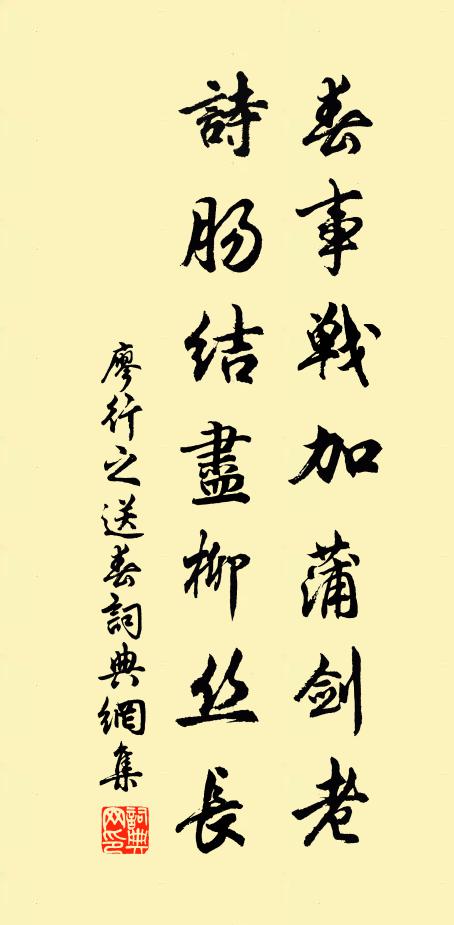 春事戰加蒲劍老
詩腸結盡柳丝長
廖行之送春詞典網集
詞典网印